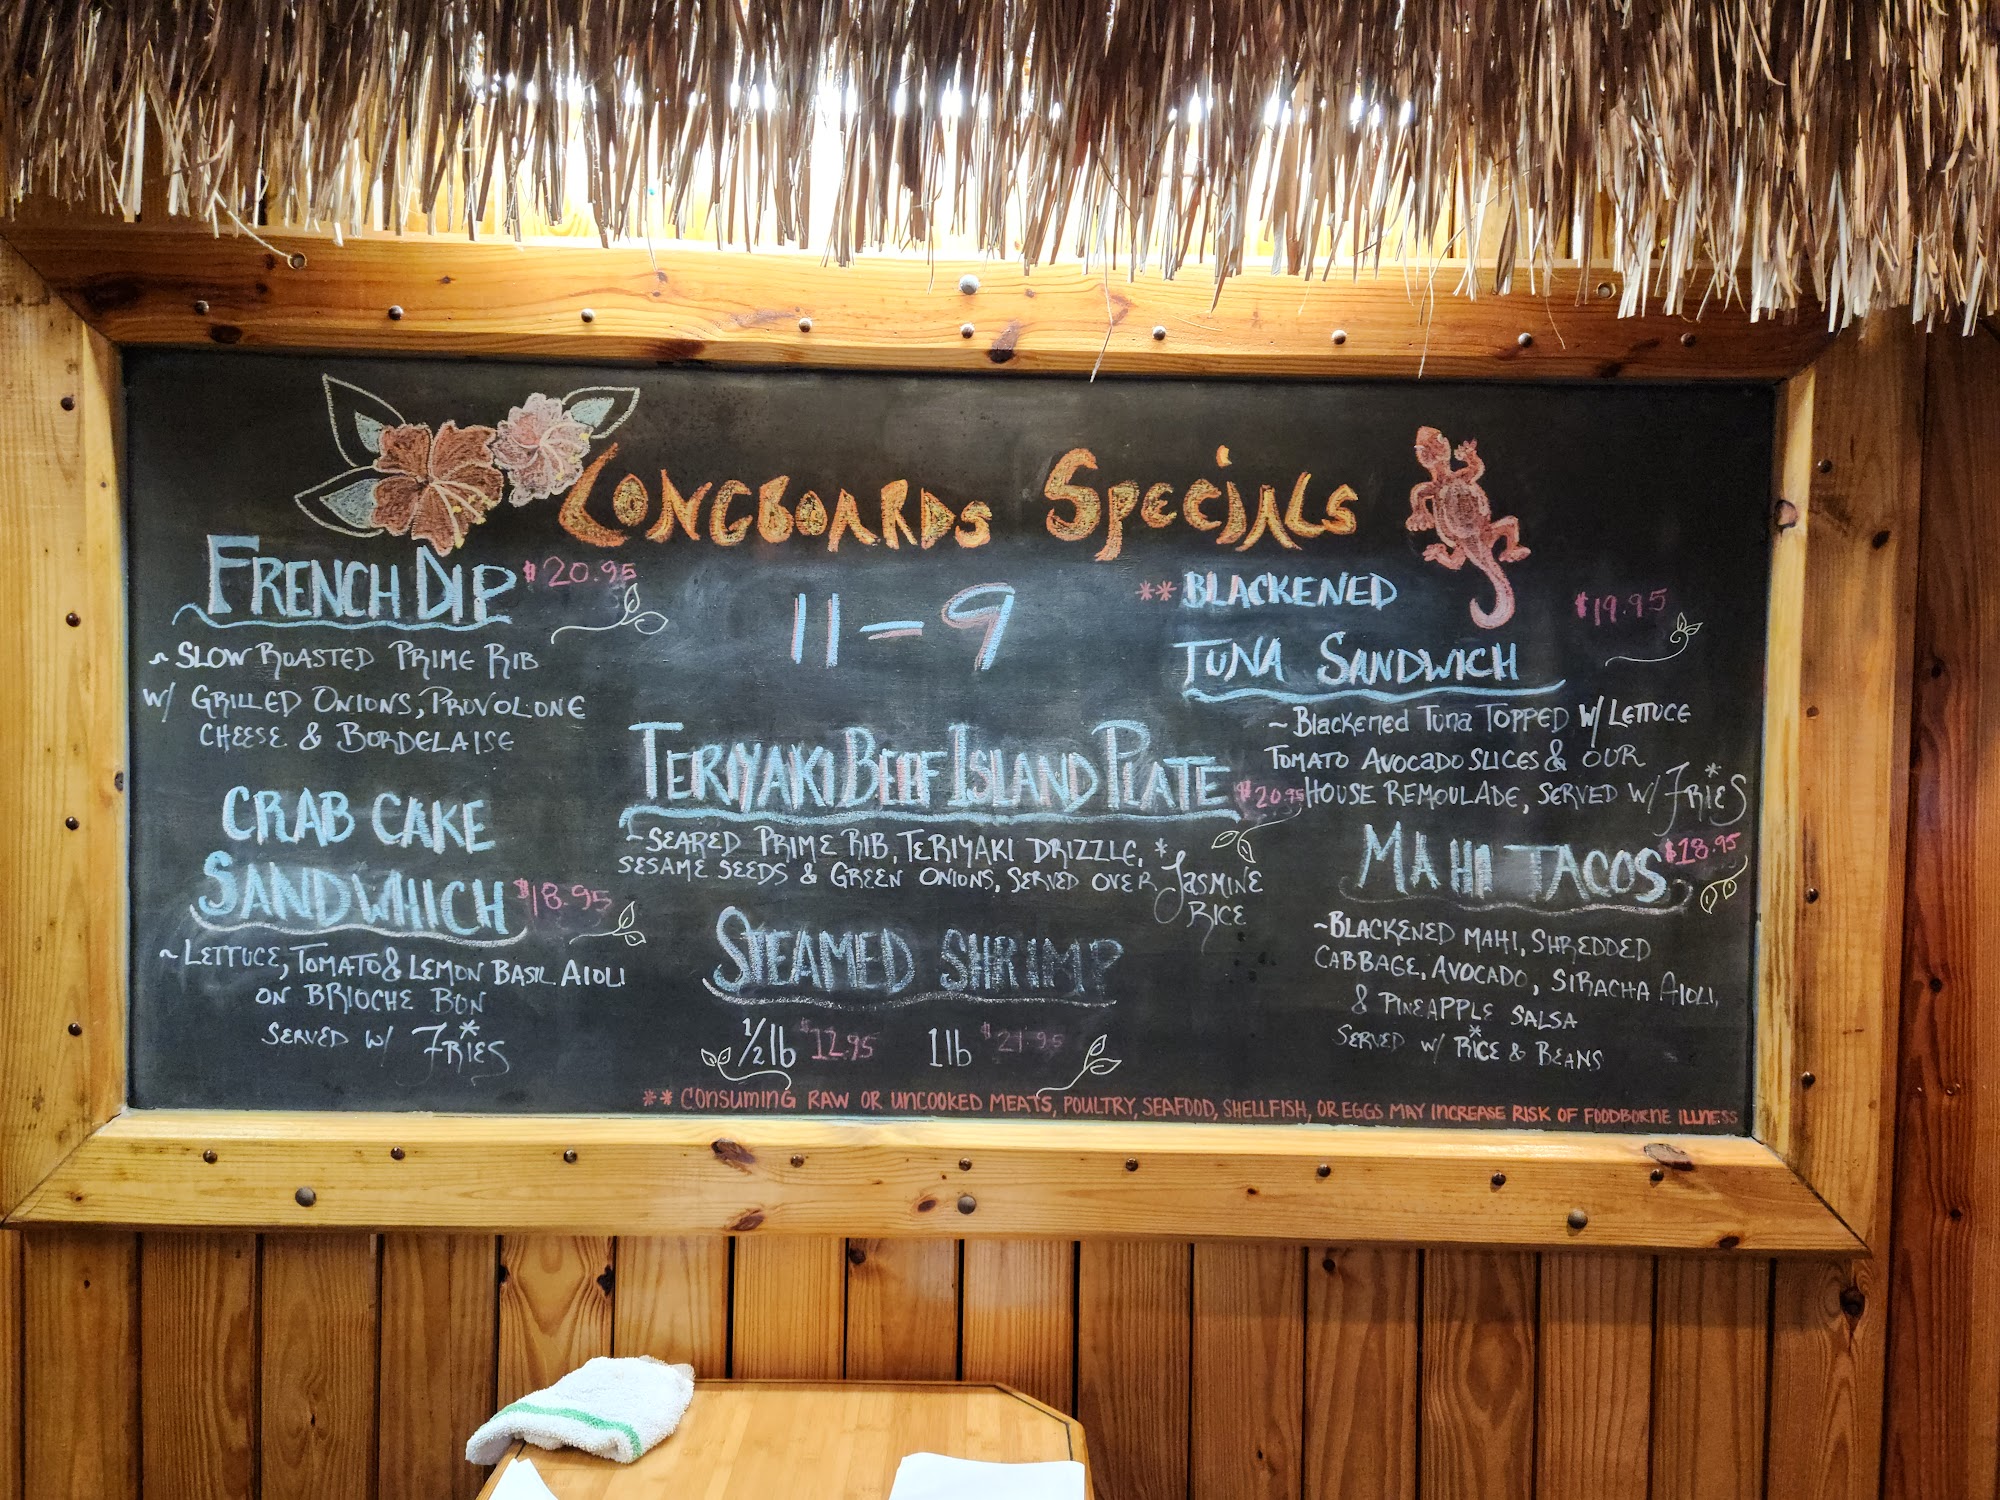 LONGBOARDS SPECiALS
11-9
FRENCH DIP $20.95
~ SLOW ROASTED PRIME RIB
W/ GRILLED ONIONS, PROVOLONE
CHEESE & BORDELAISE
CRAB CAKE
SANDWHICH $18.95
~ LETTUCE, TOMATO & LEMON BASIL AIOLI
ON BRIOCHE BUN
SERVED W/ FRIES*
TERIYAKI BEEF ISLAND PLATE $20.95
~SEARED PRIME RIB, TERIYAKI DRIZZLE,
SESAME SEEDS & GREEN ONIONS, SERVED OVER *JASMINE
RICE
STEAMED SHRIMP
1/2 lb $12.95 1 lb
**BLACKENED
TUNA SANDWICH $19.95
~Blackened Tuna TOPPED W/ LETTUCE
TOMATO AVOCADO SLICES & OUR
HOUSE REMOULADE, SERVED W/ FRIES*
MAHI TACOS $18.95
~BLACKENED MAHI, SHREDDED
CABBAGE, AVOCADO, SIRACHA AIOLI,
& PINEAPPLE SALSA
SERVED W/ *RICE & BEANS
** CONSUMING RAW OR UNCOOKED MEATS, POULTRY, SEAFOOD, SHELLFISH, OR EGGS MAY INCREASE RISK OF FOODBORNE ILLNESS